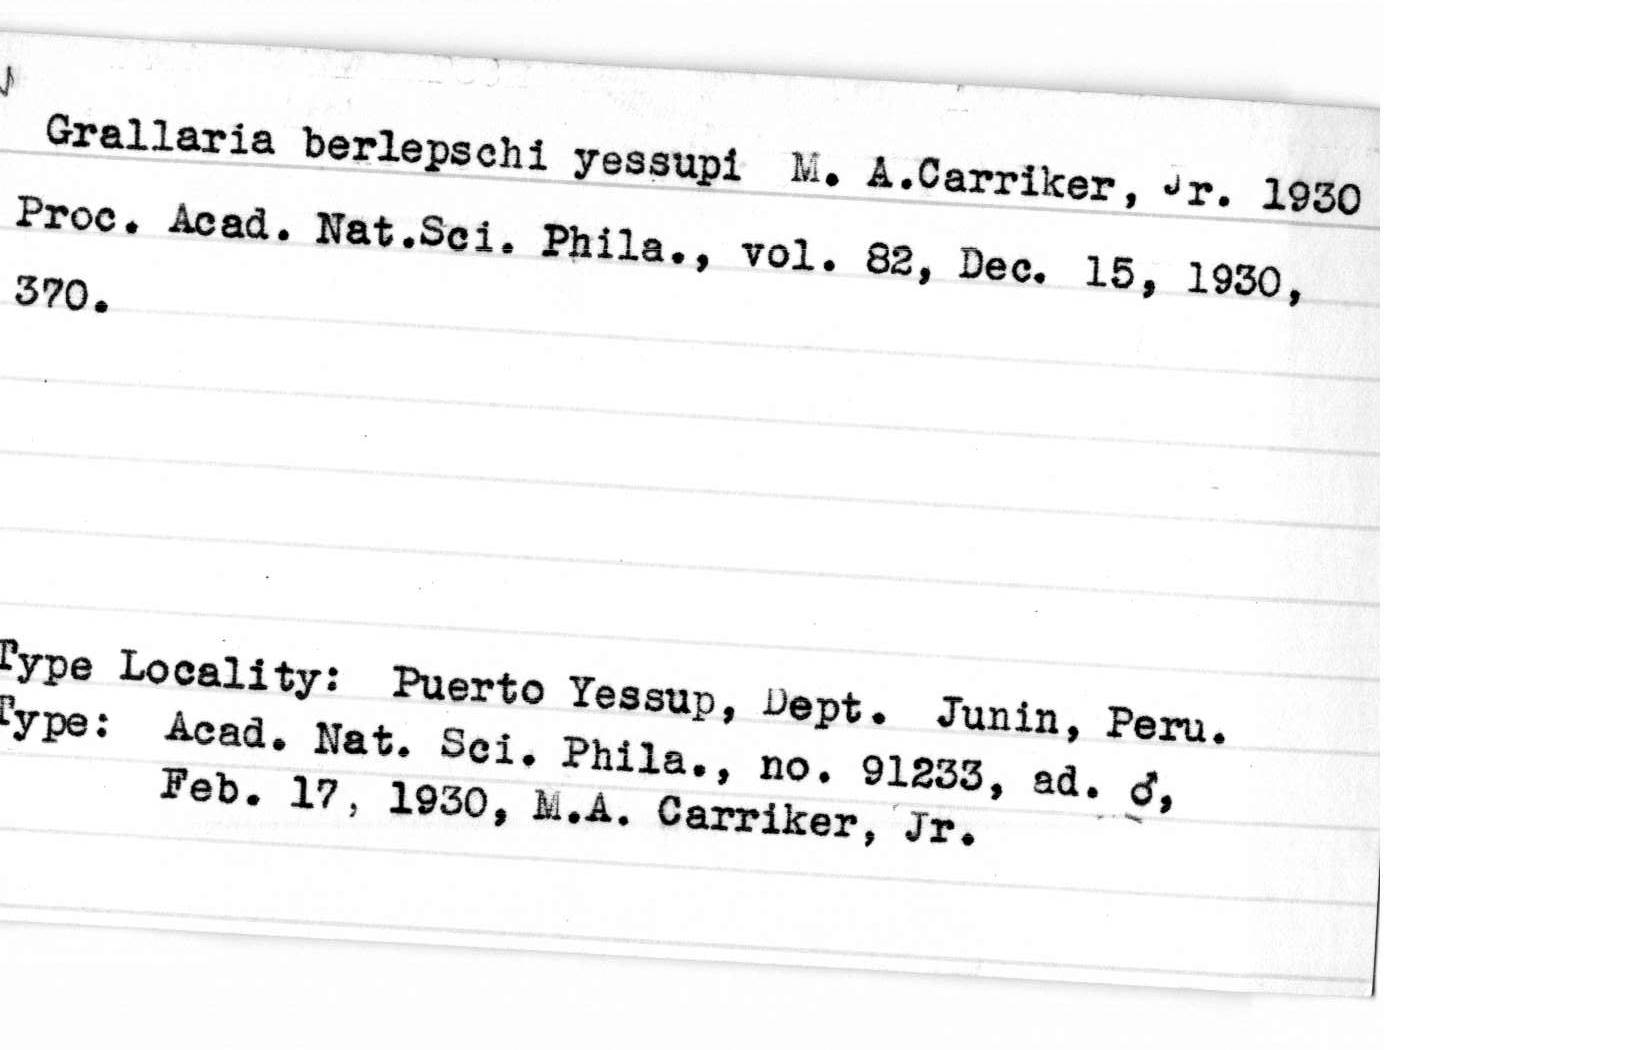 Grallaria berlepschi yessupi M. A.Carriker, Jr. 1930
Proc. Acad. Nat.Sci. Phila., vol. 82, Dec. 15, 1930,
370.
Type Locality: Puerto Yessup, Dept. Junin, Peru.
Type: Acad. Nat. Sci. Phila., no. 91233, ad. ♂,
Feb. 17, 1930, M.A. Carriker, Jr.